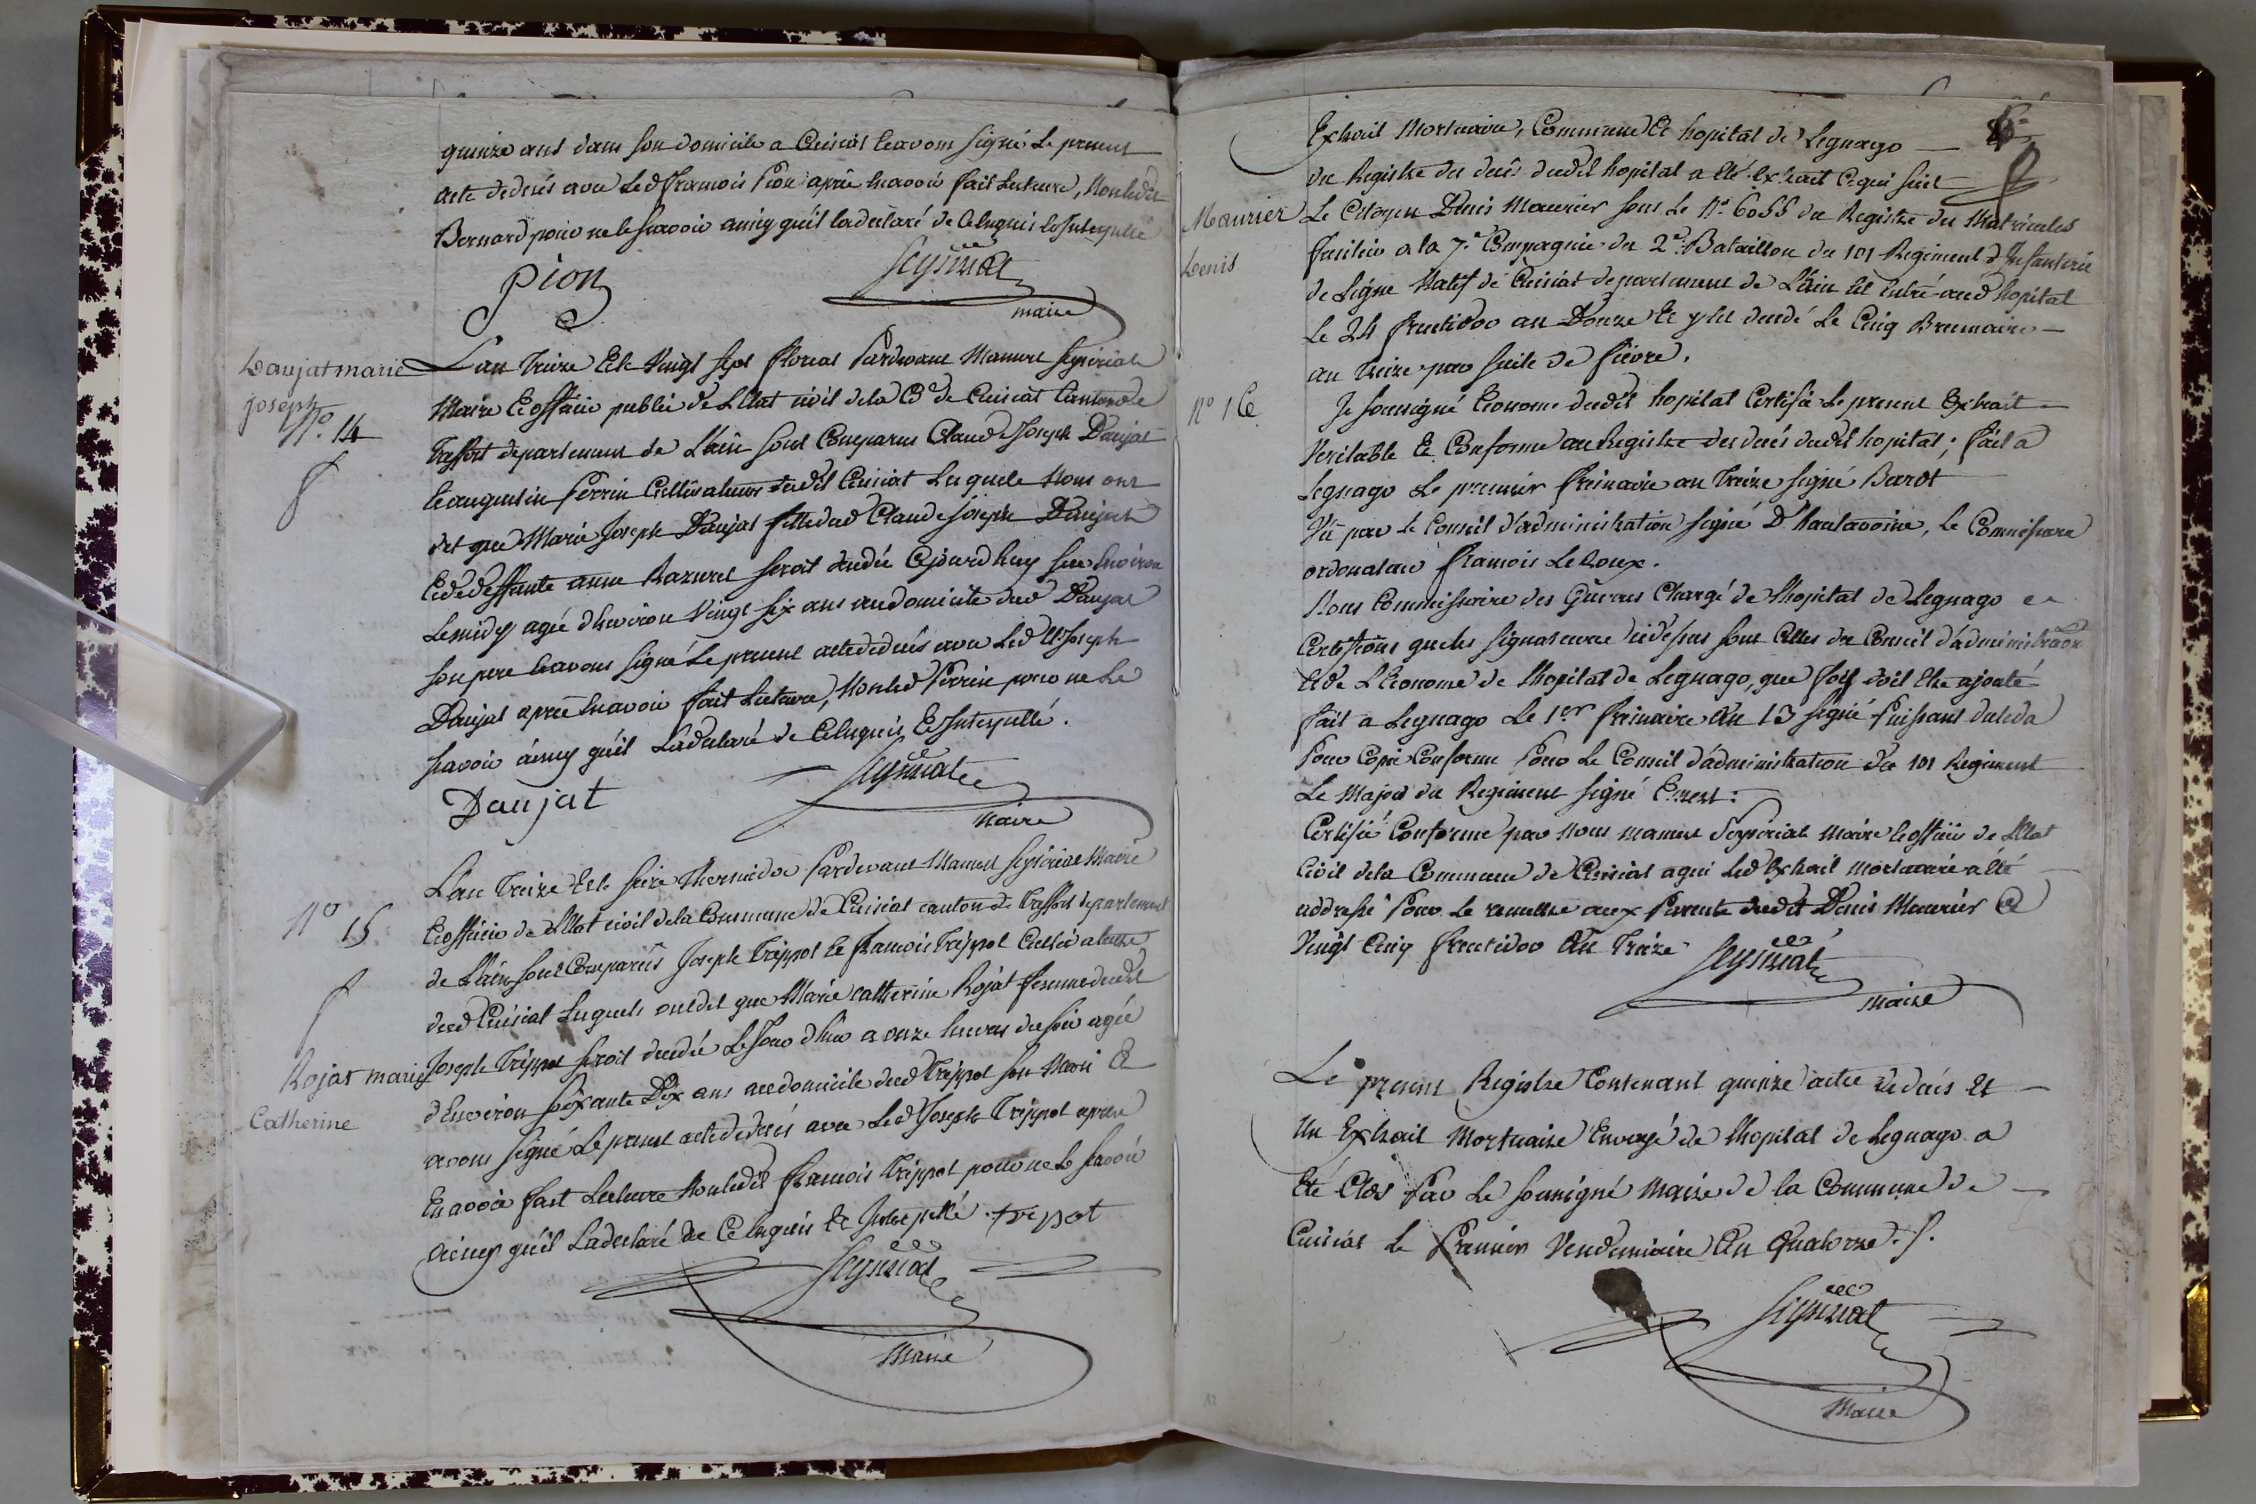 quinze ans dans son domicile a Cuisiat & avons signé Le present
acte de decés avec Led françois Pion après en avoir fait Lecture, Non led
Bernard pour ne le scavoir ainsy qu'il la declaré de ce Enquis & Interpellé
pion
Seyssériat
maire
Daujat marie
joseph
N.º 14
L'an treize Et le Vingt sept floreal Pardevant Manuel Seyssériat
Maire & officier public de L'Etat civil de la Cne de Cuisiat Canton de
Treffort departement de L'ain sont Comparus Claude Joseph Daujat
& augustin Perrin Cultivateurs dudit Cuisiat Lesquels Nous ont
dit que Marie Joseph Daujat fille dud Claude Joseph Daujat
Et de deffunte anne Razurel seroit decedée Cejourdhuy sur Environ
Le midy agée d'Environ Vingt six ans au domicile dud Daujat
son pere & avons signé Le present acte de decés avec Led Cl Joseph
Daujat après En avoir fait Lecture, Non led Perrin pour ne Le
scavoir ainsy qu'il La declaré de Ce Enquis & Interpellé.
Daujat
Seyssériat
Maire
N.º 15
L'an Treize Et le seize Thermidor Pardevant Manuel Seyssériat Maire
& officier de L'Etat civil de la Commune de Cuisiat canton de Treffort departement
de L'ain sont Comparûs Joseph Trippot & françois Trippot Cultivateurs
dud Cuisiat Lesquels ont dit que Marie catherine Rojat femme dudit
Joseph Trippot seroit decedée Le Jour d'hier a onze heures du soir agée
Rojat marie
Catherine
d'Environ soixante Dix ans au domicile dud Trippot son Mari &
avons signé Le present acte de decés avec Led Joseph Trippot après
En avoir fait Lecture Non ledit françois Trippot pour ne Le scavoir
ainsy qu'il La declaré de Ce Enquis & Interpellé. trepot
Seyssériat
Maire
Extrait Mortuaire, Commune & hopital de Legnago
du Registre des decés dudit hopital a été Extrait Ce qui suit
Maurier
Denis
Le Citoyen Denis Maurier sous Le Nº 6055 du Registre des Matricules
fusilier a la 7.e Compagnie du 2.e Bataillon du 101 Regiment d'Infanterie
de Ligne Natif de Cuisiat departement de L'ain Est Entré aud hopital
Le 24 fructidor an Douze & y Est decedé Le Cinq Brumaire
an treize par suite de fièvre.
Nº 16
Je soussigné Econome dudit hopital Certifie Le present Extrait
Veritable & Conforme au Registre des decés dudit hopital; fait a
Legnago Le premier frimaire an treize signé Barot
Vû par Le Conseil d'administration signé D'hautavoine, Le Commissaire
ordonateur françois Leroux.
Nous Commissaire des Guerres Chargé de L'hopital de Legnago
Certifions que les signatures ci dessus sont Celles du Conseil d'administraon
Et de L'Econome de L'hopital de Legnago, que foy doit Etre ajouté
fait a Legnago Le 1er frimaire An 13 signé
Pour Copie Conforme Pour Le Conseil d'administration du 101 Regiment
Le Major du Regiment signé
Certifié Conforme par Nous manuel Seyssériat maire & officier de L'Etat
Civil de la Commune de Cuisiat a qui Led Extrait mortuaire a été
addressé Pour Le remettre aux Parents dudit Denis Maurier Ce
Vingt Cinq fructidor An Treize
Seyssériat
maire
Le present Registre Contenant quinze actes de decés Et
Un Extrait Mortuaire Envoyé de L'hopital de Legnago a
été Clos Par Le soussigné Maire de la Commune de
Cuisiat Le Premier Vendemiaire An Quatorze.
Seyssériat
Maire